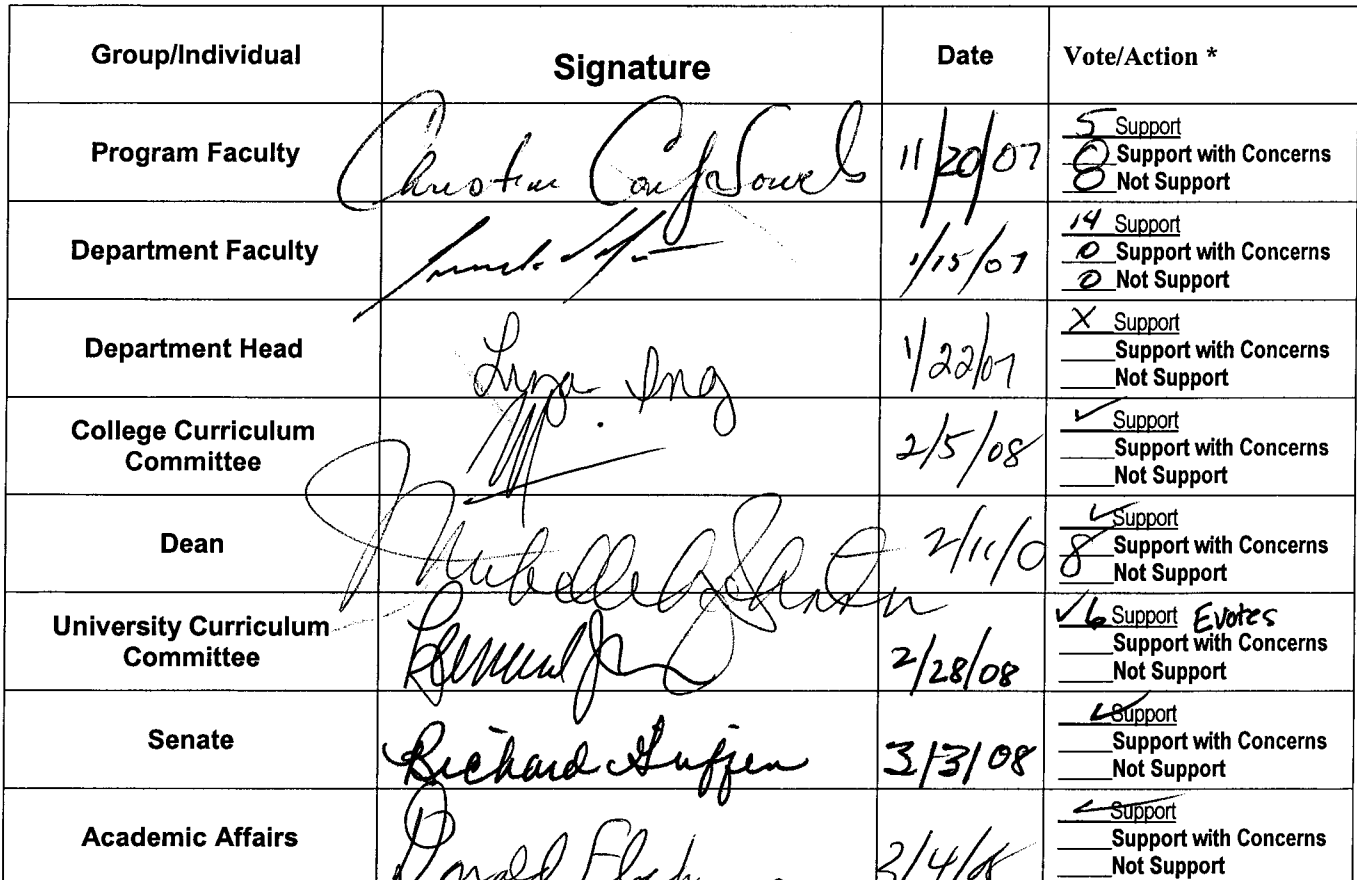 Group/Individual Signature Date Vote/Action *
Program Faculty 11/20/07 5 Support
0 Support with Concerns
0 Not Support
Department Faculty 1/15/07 14 Support
0 Support with Concerns
0 Not Support
Department Head Lyza Ing 1/22/07 X Support
Support with Concerns
Not Support
College Curriculum
Committee 2/5/08 ✓ Support
Support with Concerns
Not Support
Dean 2/11/08 ✓ Support
Support with Concerns
Not Support
University Curriculum
Committee 2/28/08 ✓ 6 Support Evotes
Support with Concerns
Not Support
Senate Richard 3/3/08 ✓ Support
Support with Concerns
Not Support
Academic Affairs Donald 3/4/08 ✓ Support
Support with Concerns
Not Support